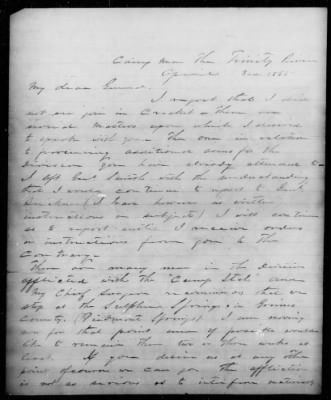 Camp near the Trinity River
April 3rd 1865
My dear General.
I regret that I did
not see you in Crockett - there are
several Matters upon which I desired
to speak with you. The one in relation
to procuring additional arms for the
Division you have already attended to
I left Genl Smith with the understanding
that I would continue to report to Genl
(I have however no written
instructions on subject) I will continue
so to report until I receive orders
or instructions from you to the
contrary.
There are many men in the Division
afflicted with the "Camp Itch" and
My Chief Surgeon recommends that we
stop at the Sulphur Springs in Grimes
County (Piedmont Springs) I am moving
now for that point and if possible would
like to remain there two or three weeks at
least. If you desire us at any other
point of course we can go the affliction
is not so serious as to interfere materially